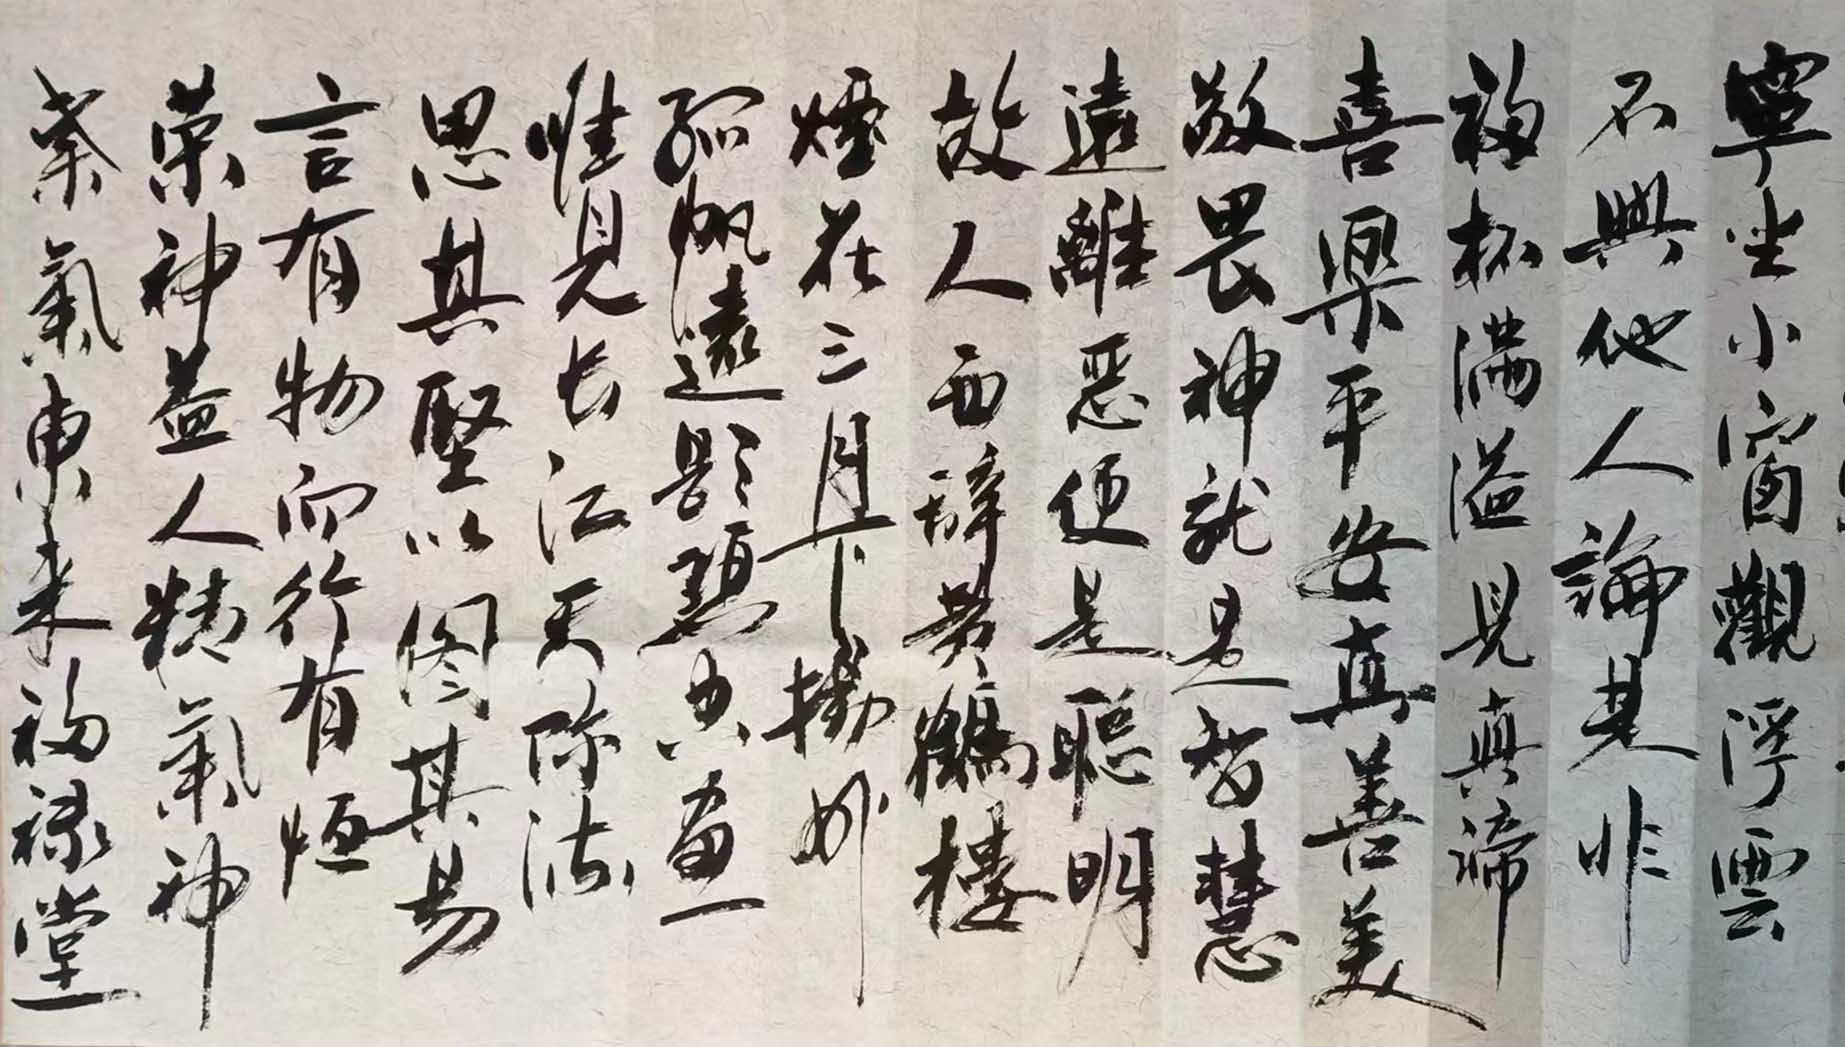 寧坐小窗觀浮雲
不與他人論是非
福杯滿溢見真諦
喜樂平安真善美
敬畏神就是智慧
遠離惡便是聰明
故人西辭黃鶴樓
煙花三月下揚州
孤帆遠影碧空盡
唯見長江天際流
思其堅以圖其易
言有物而行有恆
榮神益人精氣神
紫氣東來福祿堂